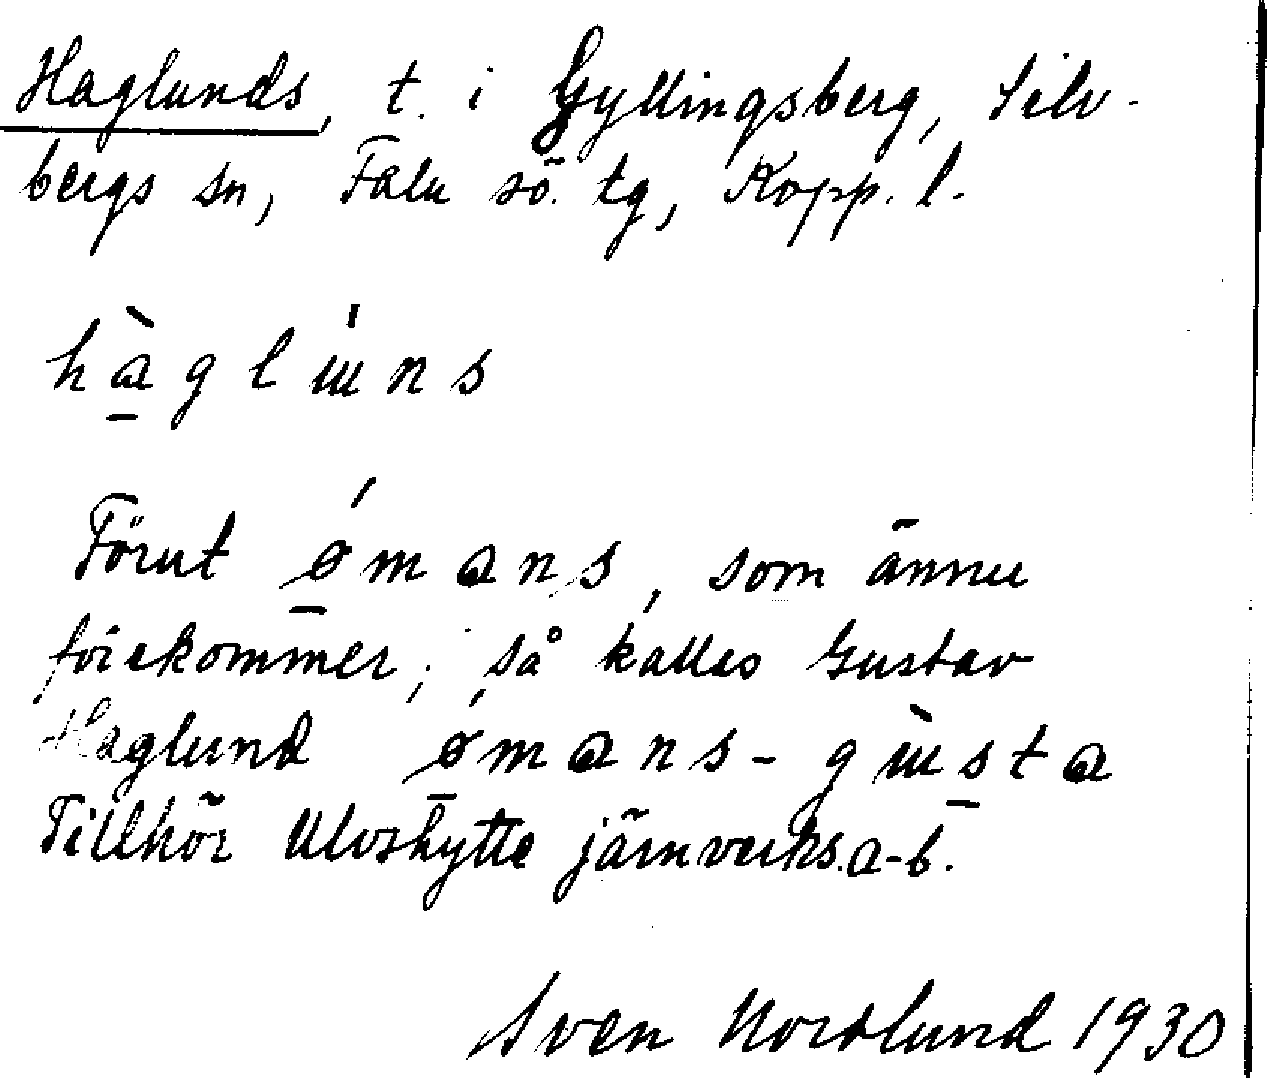 Haglunds, t. i Gyllingsberg, Silv-
bergs sn, Falu sö. tg, Kopp. l.
hàglɯ́ns
Förut ǿmans, som ännu
förekommer; så kallas Gustav
Haglund ǿmans-gɯ̀sta
Tillhör Ulvshytte järnverks a-b.
Sven Nordlund 1930